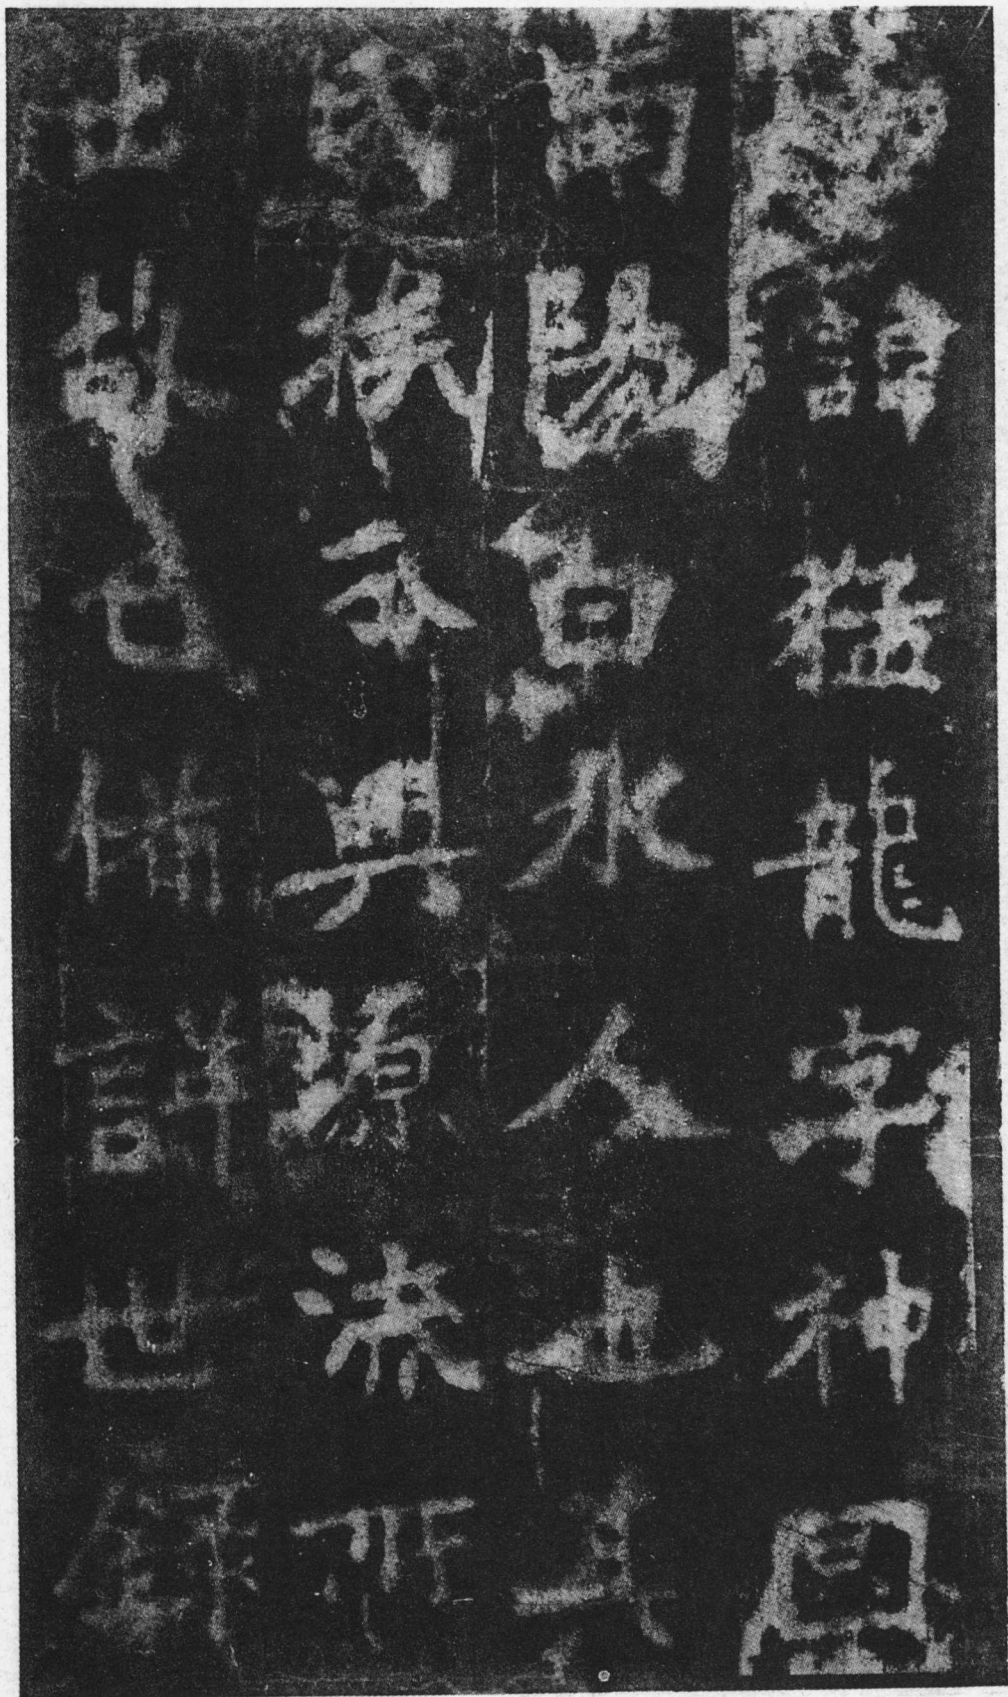 諱猛龍字神囧
南陽白水人也其
氏族分興源流所
出故已備詳世錄